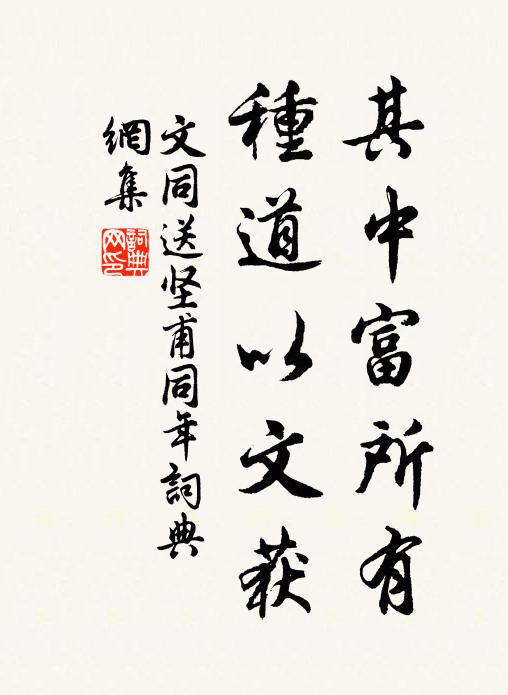 其中富所有
種道以文获
文同送坚甫同年詞典
網集
詞典
网印